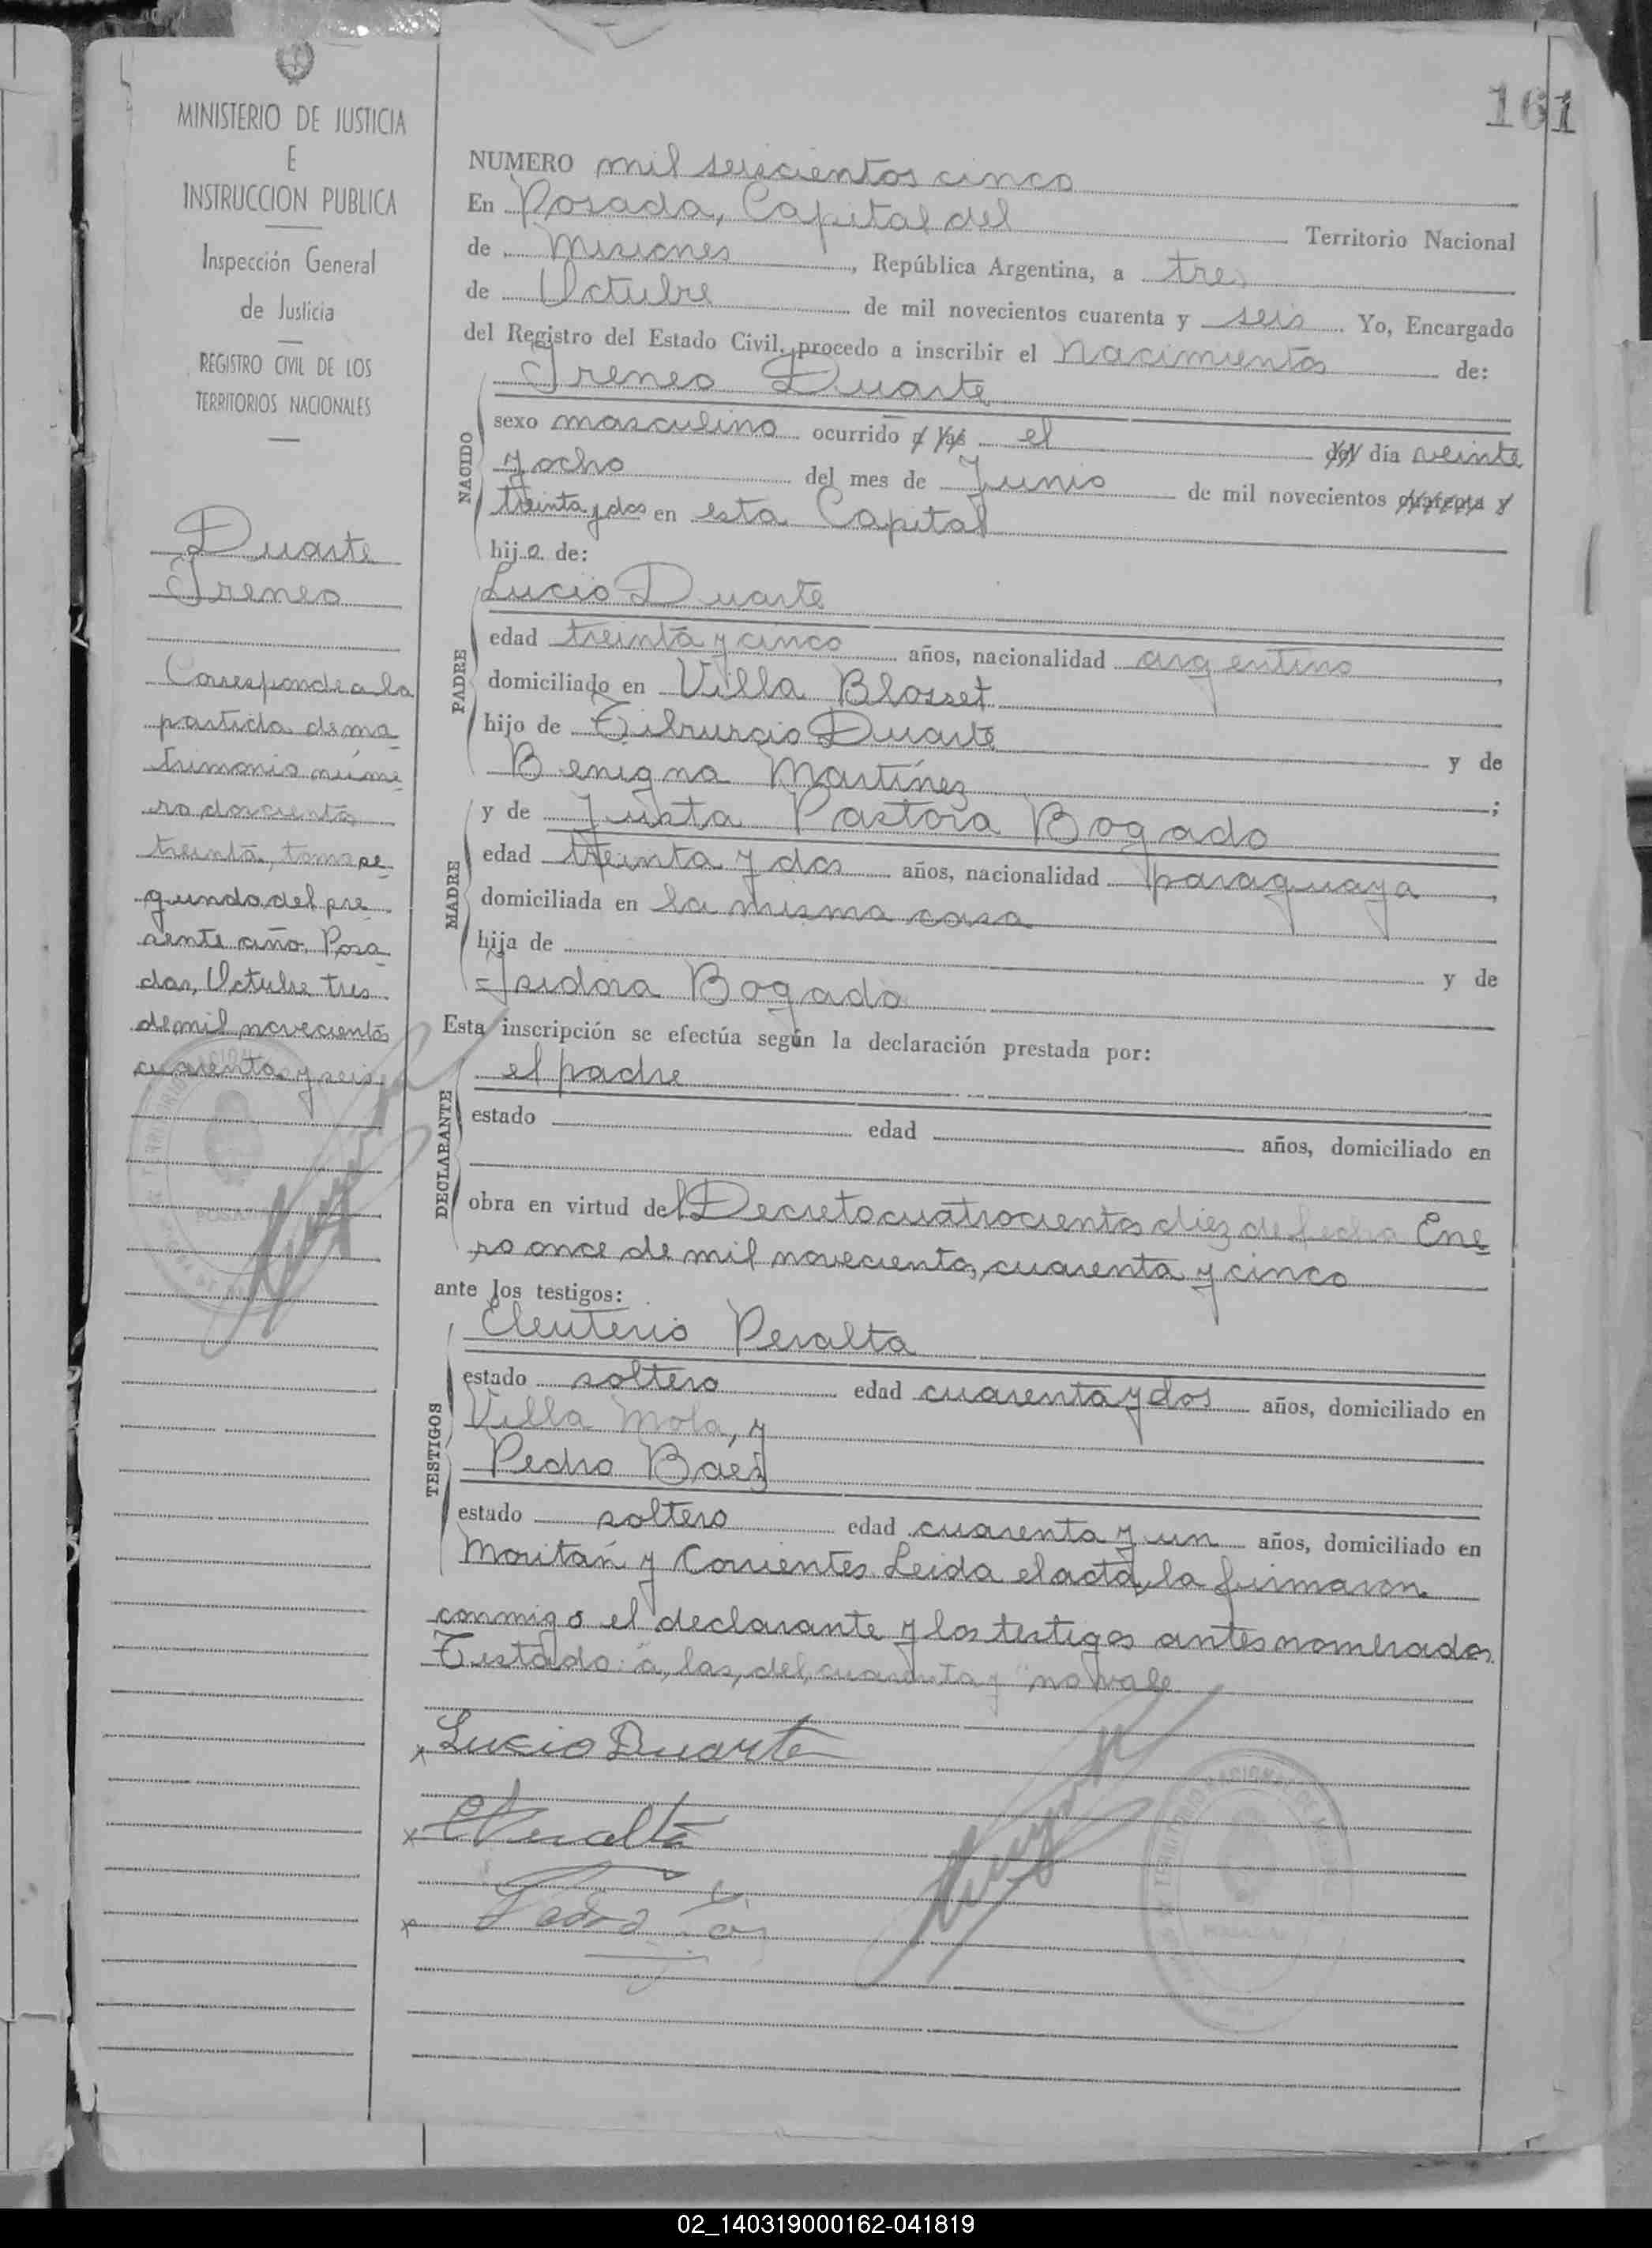 161
MINISTERIO DE JUSTICIA
E
INSTRUCCION PUBLICA
Inspección General
de Justicia
REGISTRO CIVIL DE LOS
TERRITORIOS NACIONALES
Duarte
Ireneo
Corresponde a la
partida de ma-
trimonio núme-
ro doscientos
treinta, tomo se-
gundo del pre-
sente año. Posa-
das, Octubre tres
de mil novecientos
cuarenta y seis
NUMERO mil seiscientos cinco
En Posadas, Capital del Territorio Nacional
de Misiones, República Argentina, a tres
de Octubre de mil novecientos cuarenta y seis. Yo, Encargado
del Registro del Estado Civil, procedo a inscribir el nacimiento de:
Ireneo Duarte
NACIDO
sexo masculino ocurrido a las el del día veinte
y ocho del mes de Junio de mil novecientos cuarenta y
treinta y dos en esta Capital
hijo de:
PADRE
Lucio Duarte
edad treinta y cinco años, nacionalidad argentino
domiciliado en Villa Blosset
hijo de Tiburcio Duarte y de
Benigna Martínez;
MADRE
y de Justa Pastora Bogado
edad treinta y dos años, nacionalidad paraguaya
domiciliada en la misma casa
hija de y de
Isidora Bogado
Esta inscripción se efectúa según la declaración prestada por:
DECLARANTE
el padre
estado edad años, domiciliado en
obra en virtud del Decreto cuatrocientos diez de fecha Ene-
ro once de mil novecientos cuarenta y cinco
ante los testigos:
TESTIGOS
Eleuterio Peralta
estado soltero edad cuarenta y dos años, domiciliado en
Villa Mola, y
Pedro Baez
estado soltero edad cuarenta y un años, domiciliado en
Moritán y Corrientes Leida el acta, la firmaron
conmigo el declarante y los testigos antes nombrados
Testado: "a, las, del, cuarenta y" no vale
x Lucio Duarte
x EPeralta
x Pedro
02_140319000162-041819